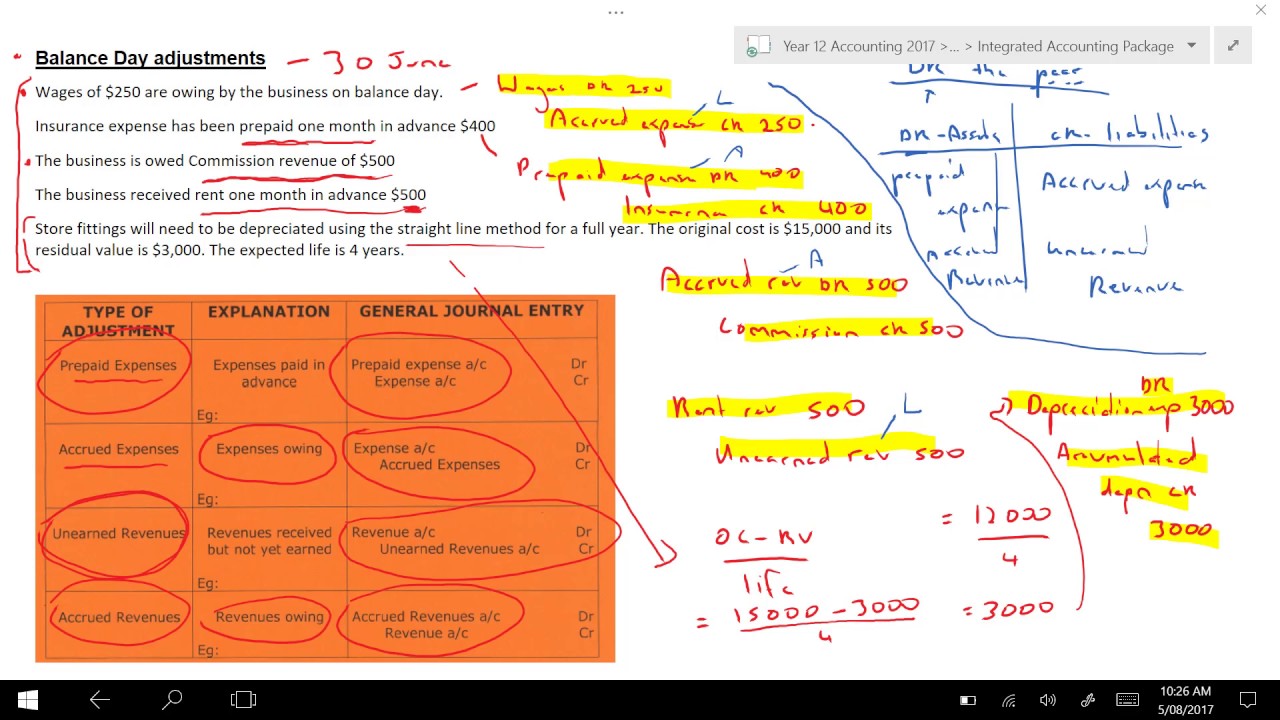 Year 12 Accounting 2017 >... > Integrated Accounting Package
Balance Day adjustments - 30 June
Wages of $250 are owing by the business on balance day.
Insurance expense has been prepaid one month in advance $400
The business is owed Commission revenue of $500
The business received rent one month in advance $500
Store fittings will need to be depreciated using the straight line method for a full year. The original cost is $15,000 and its
residual value is $3,000. The expected life is 4 years.
Wages DR 250
L
Accrued expense CR 250.
A
Prepaid expense DR 400
Insurance CR 400
A
Accrued rev DR 500
Commission CR 500
Rent rev 500
L
Unearned rev 500
DR the
DR-Assets
CR-liabilities
prepaid
expense
Accrued expense
Accrued
Revenue
Unearned
Revenue
DR
Depreciation exp 3000
Accumulated
depn CR
3000
OC-RV
life
= 12000
4
= 15000 - 3000
4
= 3000
TYPE OF
ADJUSTMENT
EXPLANATION
GENERAL JOURNAL ENTRY
Prepaid Expenses
Expenses paid in
advance
Eg:
Prepaid expense a/c Dr
Expense a/c Cr
Accrued Expenses
Expenses owing
Eg:
Expense a/c Dr
Accrued Expenses Cr
Unearned Revenues
Revenues received
but not yet earned
Eg:
Revenue a/c Dr
Unearned Revenues a/c Cr
Accrued Revenues
Revenues owing
Eg:
Accrued Revenues a/c Dr
Revenue a/c Cr
10:26 AM
5/08/2017